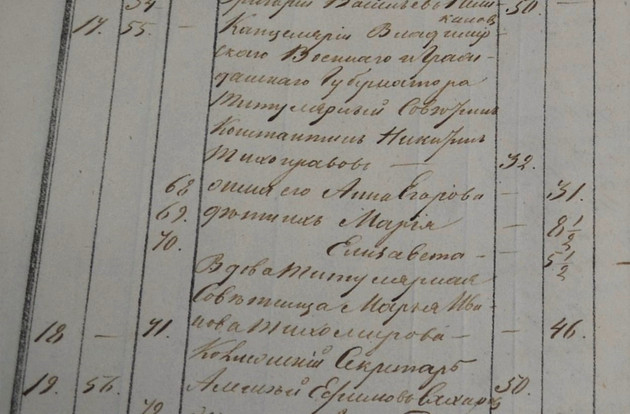 54 Григорій Васильевъ 50 —
17. 55. — Канцелярiи Владимiр
скаго Военнаго и Граж
данскаго Губернатора
Титулярный Совѣтникъ
Константинъ Никитинъ
Тихонравовъ — 32.
68 жена его Анна Егорова — 31.
69. дѣти ихъ Марiя — 8 1/2
70. Елизавета — 5 1/2
Вдова Титулярная
Совѣтница Марья Ива
18 — 71. нова Тихомирова — — 46.
Секретарь
19. 56. Алексѣй Ефимовъ Сахаров 30.
72